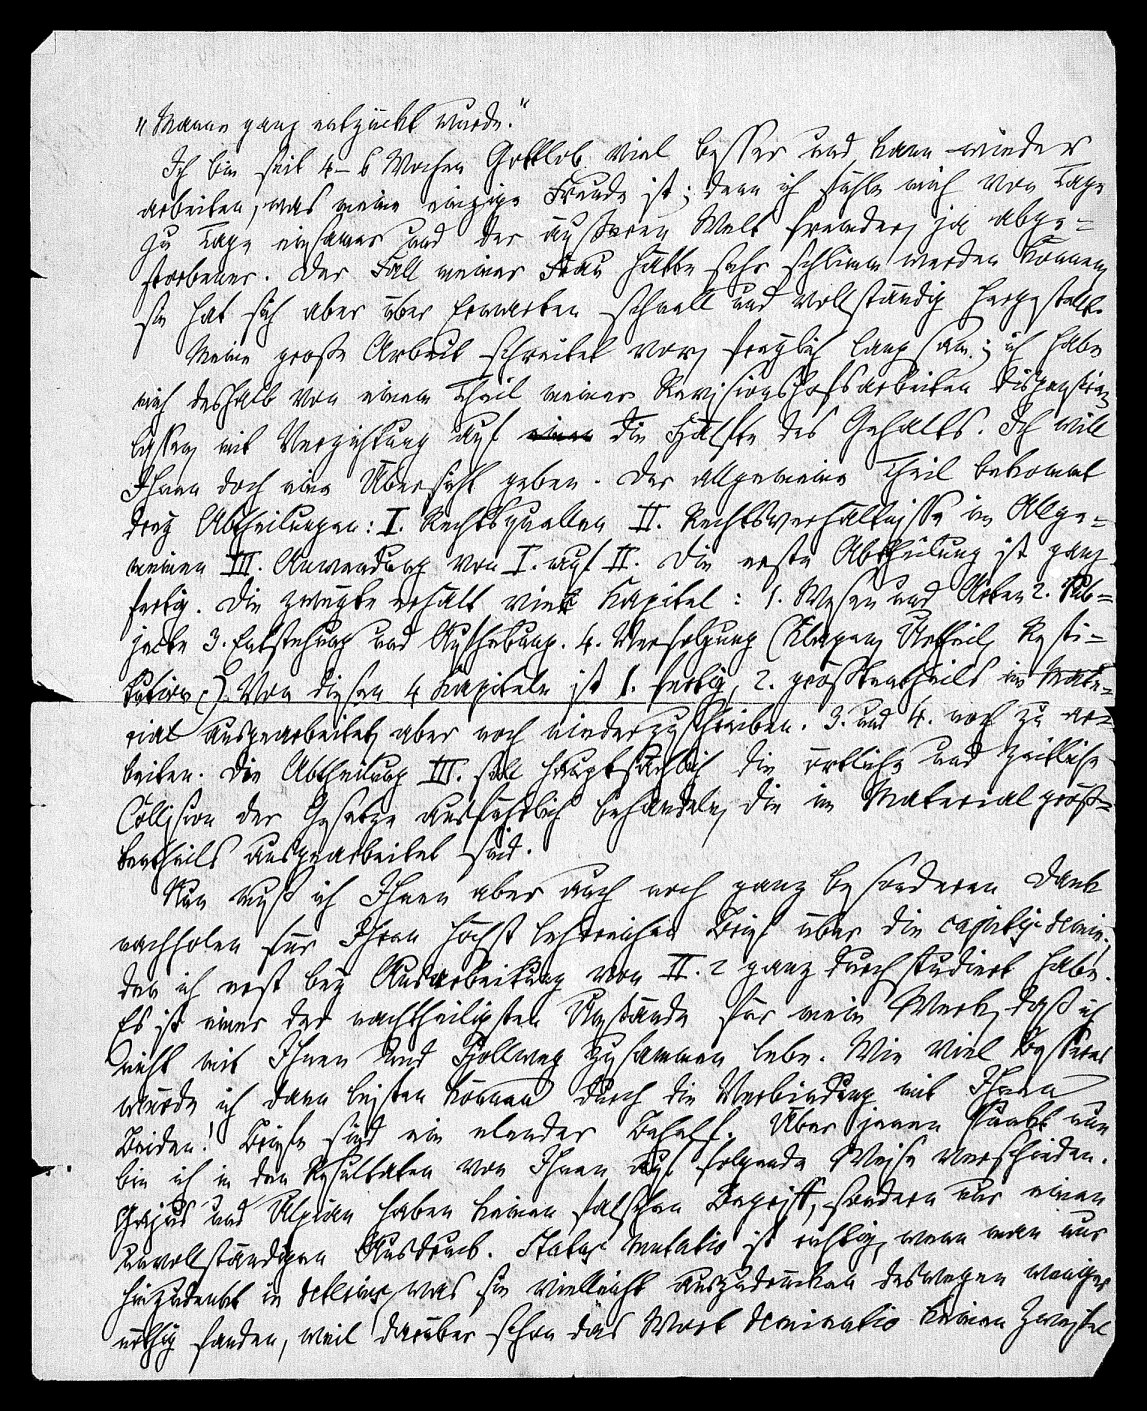 "Manne ganz entzückt wurde."
Ich bin seit 4-6 Wochen Gottlob viel besser und kann wieder
arbeiten, was meine einzige Freude ist; denn ich fühle mich von Tage
zu Tage einsamer und der äußeren Welt fremder, ja abge=
storbener. Der Fall meiner Frau hätte sehr schlimm werden können,
sie hat sich aber über Erwarten schnell und vollständig hergestellt.
Meine große Arbeit schreitet vor, freylich langsam; ich habe
mich deshalb von einem Theil meiner Revisionshofsarbeiten dispensiren
lassen, mit Verzichtung auf die Hälfte des Gehalts. Ich will
Ihnen doch eine Übersicht geben. Der allgemeine Theil bekommt
drey Abtheilungen: I. Rechtsquellen II. Rechtsverhältnisse im Allge=
meinen III. Anwendung von I. auf II. Die erste Abtheilung ist ganz
fertig. Die zweyte erhält vier Kapitel: 1. Wesen und Arten 2. Sub=
jecte 3. Entstehung und Aufhebung. 4. Verfolgung (Klagen, Urtheil, Resti=
tution). Von diesen 4 Kapiteln ist 1. fertig, 2. größtentheils im Mate=
rial ausgearbeitet, aber noch niederzuschreiben. 3. und 4. noch zu ar=
beiten. Die Abtheilung III. soll hauptsächlich die örtliche und zeitliche
Collision der Gesetze ausführlich behandeln, die im Material größ=
tentheils ausgearbeitet sind.
Nun muß ich Ihnen aber auch noch ganz besonderen Dank
nachholen für Ihren höchst lehrreichen Brief über die capitis demin.,
den ich erst bey Ausarbeitung von II. 2 ganz durchstudiert habe.
Es ist einer der nachtheiligsten Umstände für mein Werk, daß ich
nicht mit Ihnen und Hollweg zusammen lebe. Wie viel Besseres
würde ich dann leisten können durch die Verbindung mit Ihnen
Beiden! Briefe sind ein elender Behelf. Über jenen Punkt nun
bin ich in den Resultaten von Ihnen auf folgende Weise verschieden.
Gajus und Ulpian haben keinen falschen Begriff, sondern nur einen
unvollständigen Ausdruck. Status mutatio ist richtig, wenn man nur
hinzudenkt in deterius, was sie vielleicht auszudrücken deswegen weniger
nöthig fanden, weil darüber schon das Wort deminutio keinen Zweifel